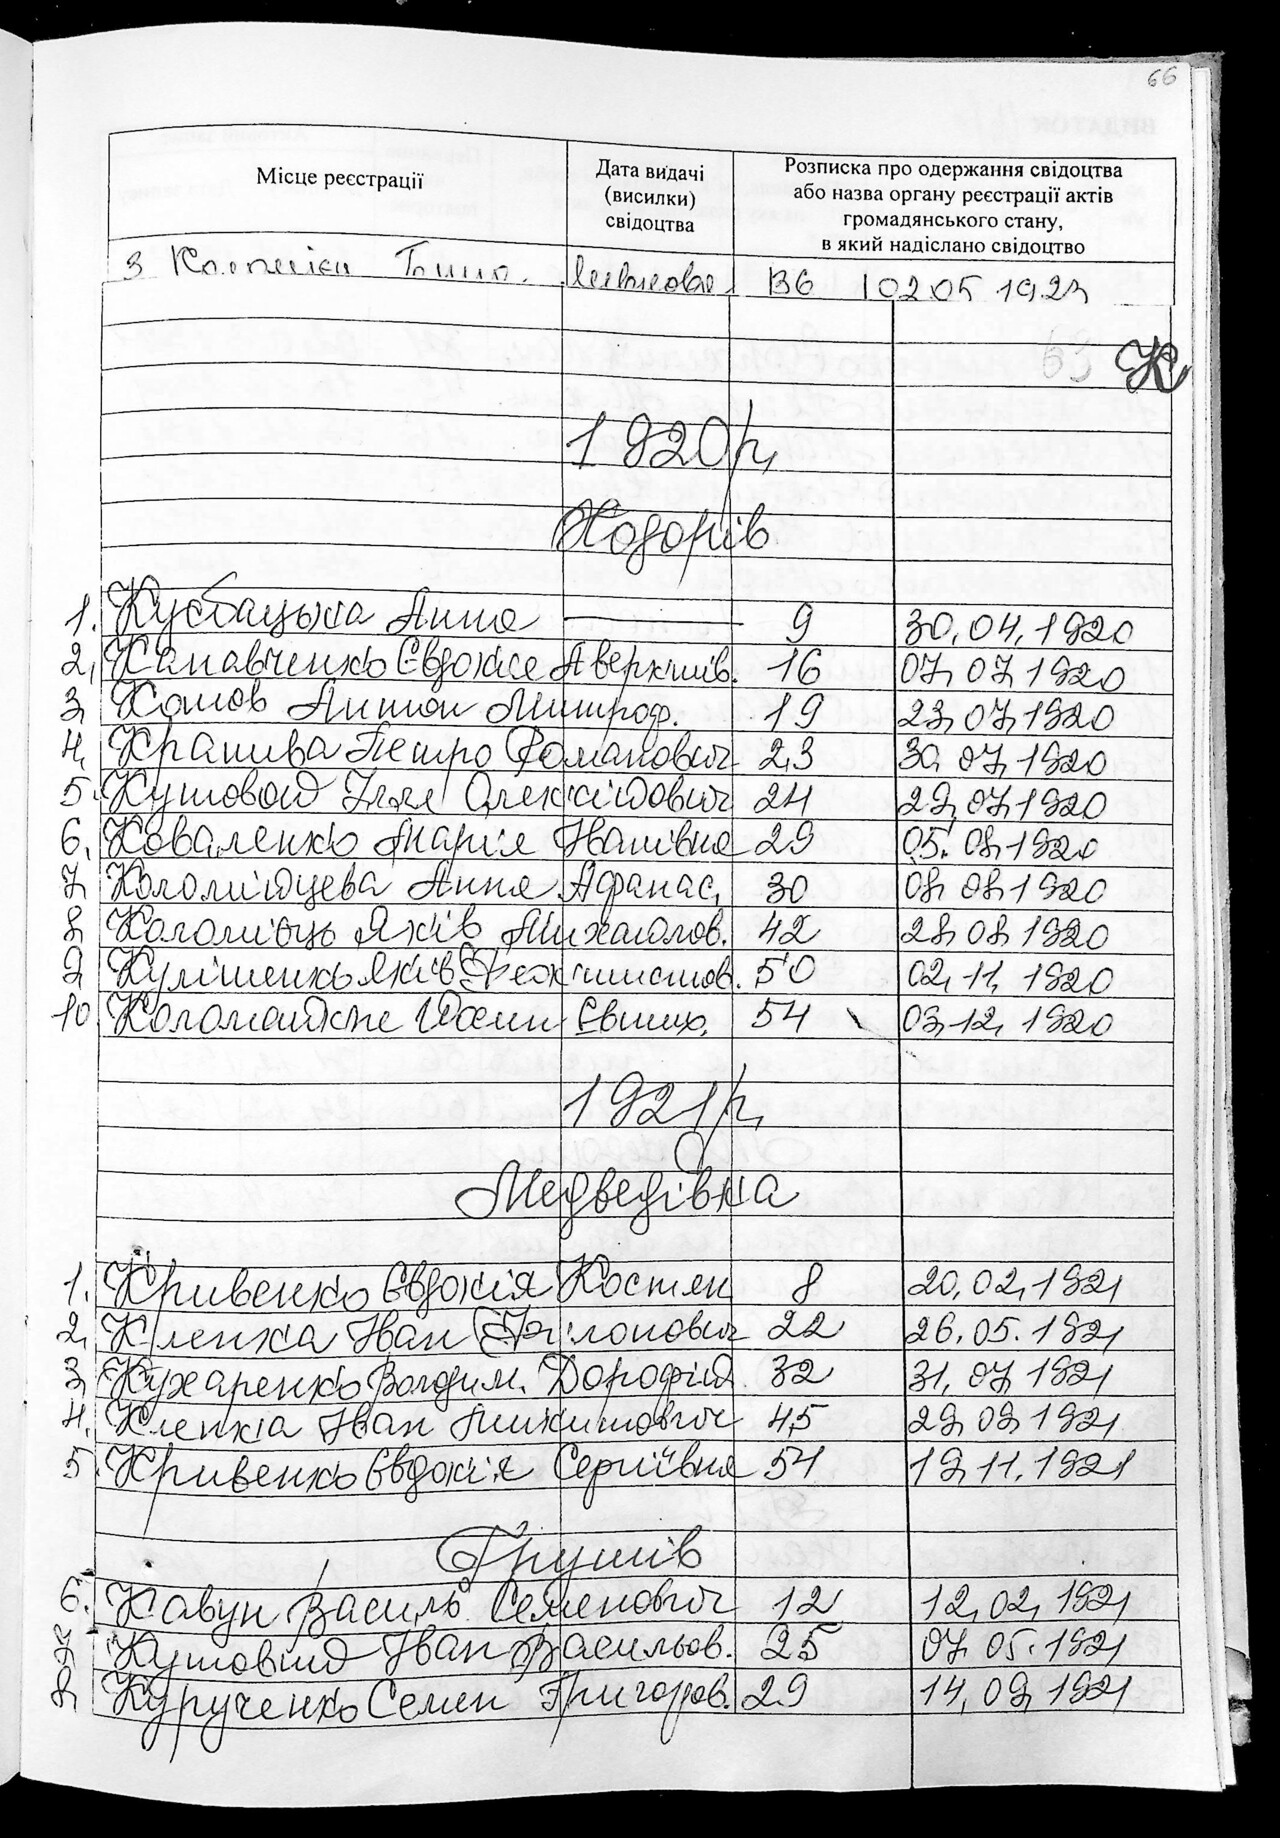 66
Місце реєстрації
Дата видачі
(висилки)
свідоцтва
Розписка про одержання свідоцтва
або назва органу реєстрації актів
громадянського стану,
в який надіслано свідоцтво
3 36 02 05 1923
63 К
1920 р,
Ходорів
1. Анна — 9 30.04.1920
2. Канавченко Євдокія Аверкиїв. 16 07.07.1920
3. Комов Антон Митроф. 19 23.07.1920
4. Крапива Петро Романович 23 30.07.1920
5. Кутовой Ілля Олексійович 24 29.07.1920
6. Коваленко Марія Іванівна 29 05.08.1920
7. Коломійцева Анна Афанас. 30 08.08.1920
8. Коломієць Яків Михайлов. 42 28.08.1920
9. Кулішенко Яків 50 02.11.1920
10. 54 03.12.1920
1921 р,
Медведівка
1. Кривенко Євдокія Костян 8 20.02.1921
2. Клепка Іван Філонович 22 26.05.1921
3. Кухаренко Володим. Дорофій. 32 31.07.1921
4. Клепка Іван Микитович 45 29.09.1921
5. Кривенко Євдокія Сергіївна 54 19.11.1921
Грушів
6. Кавун Василь Семенович 12 12.02.1921
7. Кутовий Іван Васильов. 25 07.05.1921
8. Курученко Семен Григоров. 29 14.09.1921